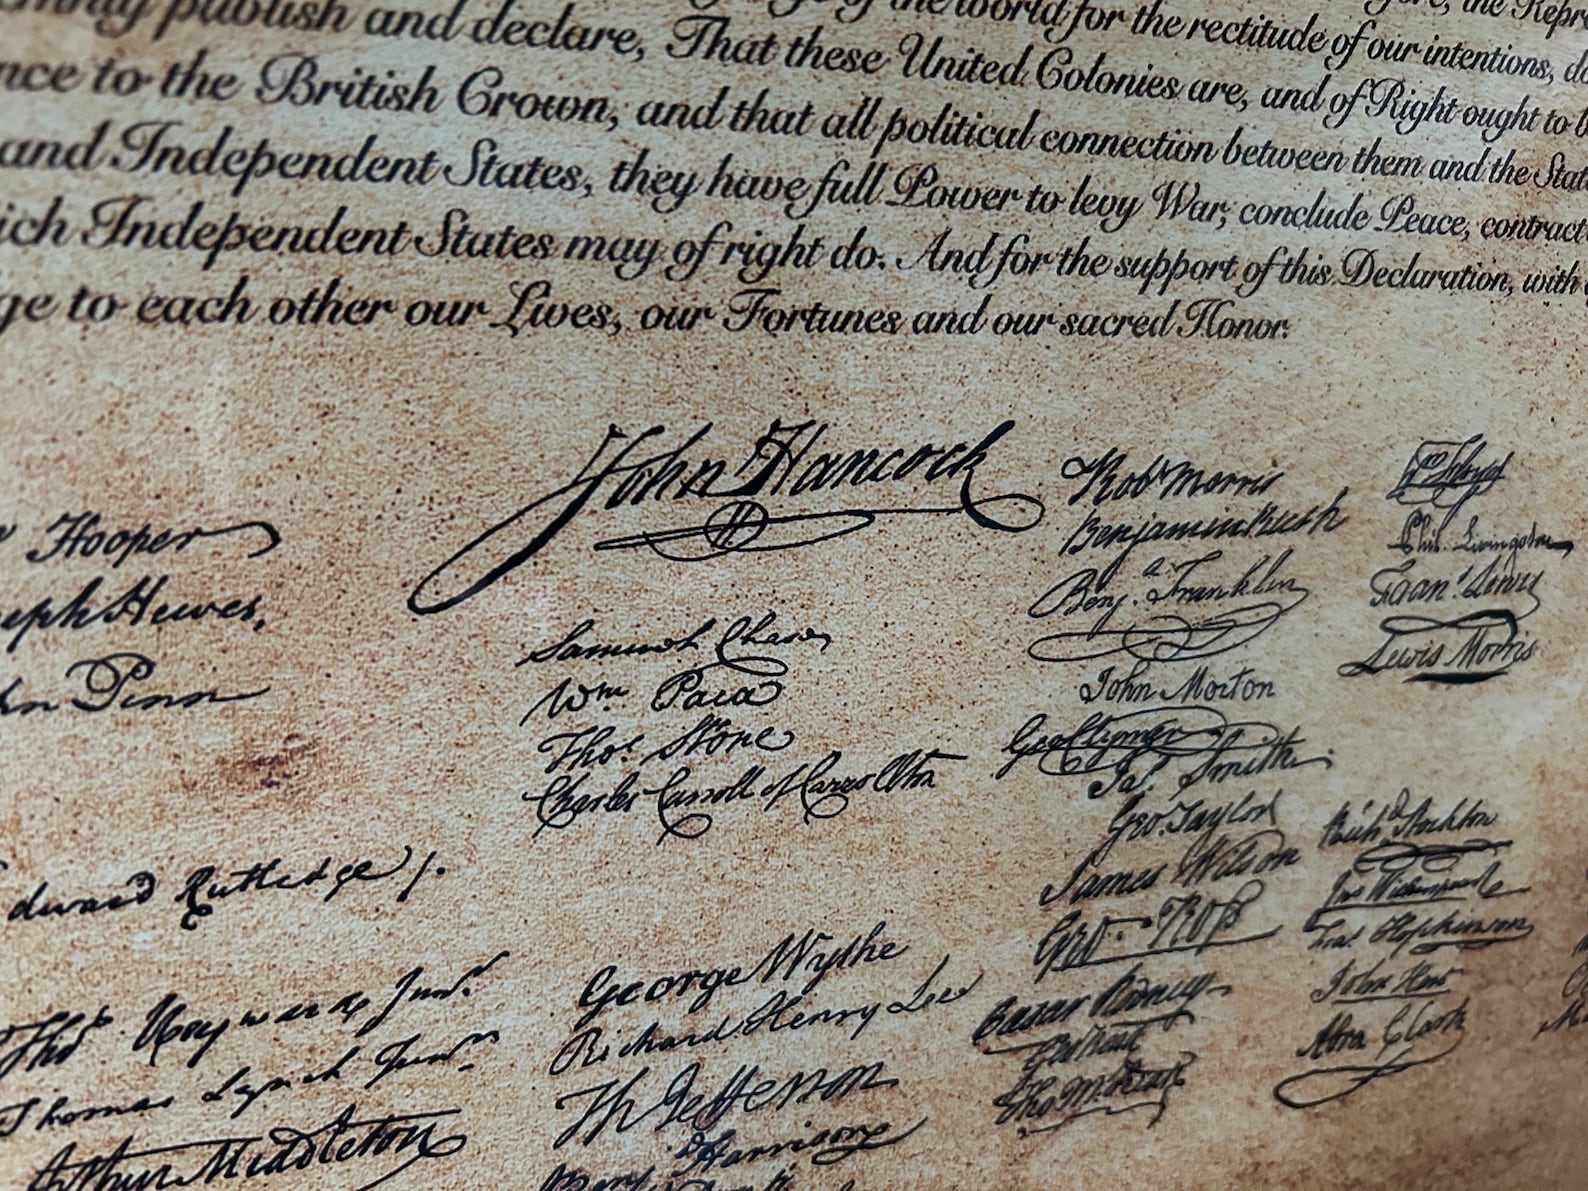 publish and declare, That these United Colonies are, and of Right ought to
of the world for the rectitude of our intentions,
to the British Crown, and that all political connection between them and the
and Independent States, they have full Power to levy War, conclude Peace, contract
Independent States may of right do. And for the support of this Declaration, with
to each other our Lives, our Fortunes and our sacred Honor.
John Hancock
Hooper
Hewes,
Penn
Edward Rutledge /.
Thos Heyward Junr.
Thomas Lynch Junr.
Arthur Middleton
Samuel Chase
Wm. Paca
Thos. Stone
Charles Carroll of Carrollton
George Wythe
Richard Henry Lee
Th Jefferson
Harrison
Robt Morris
Benjamin Rush
Benja. Franklin
John Morton
Geo Clymer
Jas. Smith
Geo. Taylor
James Wilson
Geo. Ross
Caesar Rodney
Geo Read
Tho M:Kean
Wm Floyd
Phil. Livingston
Frans. Lewis
Lewis Morris
Richd. Stockton
Jno Witherspoon
Fras. Hopkinson
John Hart
Abra Clark